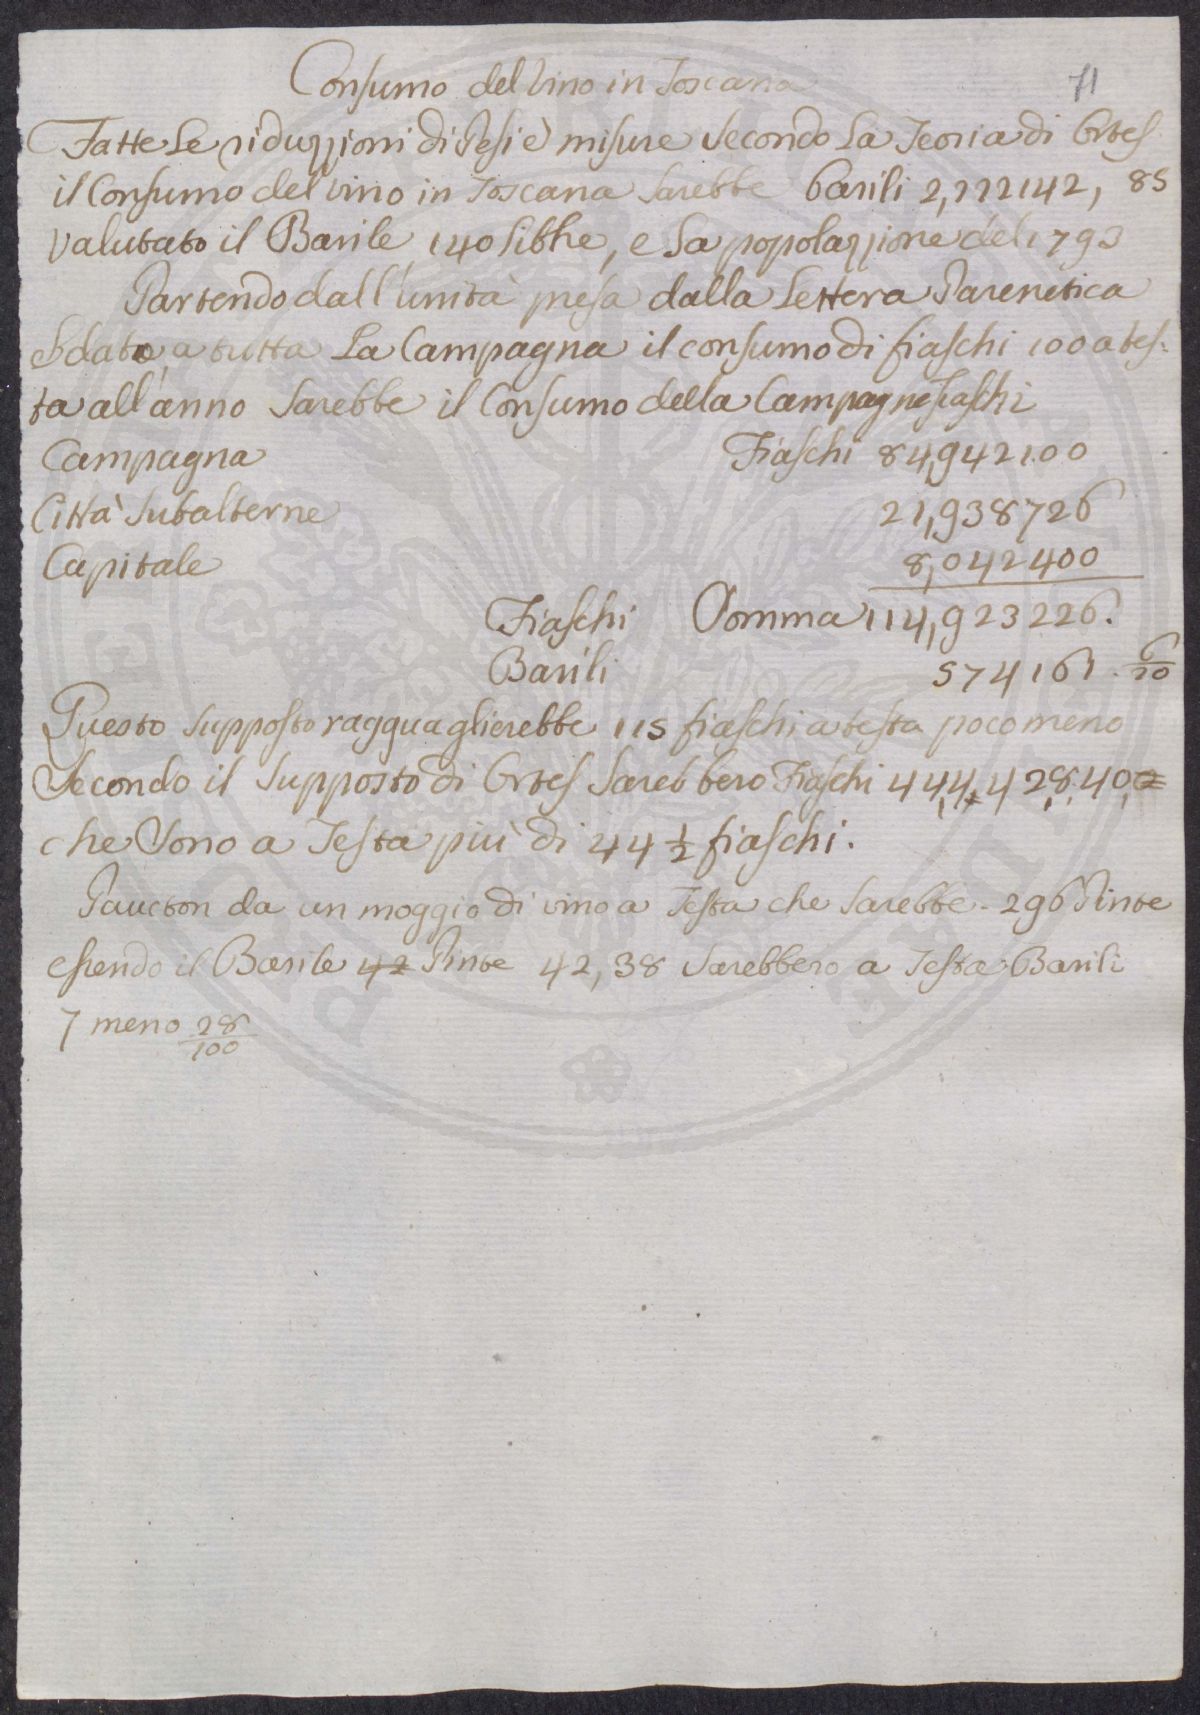 Consumo del Vino in Toscana
71
Fatte Le riduzzioni di Pesi e misure Secondo La Teoria di Ortes
il Consumo del vino in Toscana Sarebbe Barili 2,222142, 85
Valutato il Barile 140 libbre, e La popolazzione del 1793
Partendo dall'unità presa dalla Lettera Parenetica
e dato a tutta La Campagna il consumo di fiaschi 100 a tes-
ta all'anno Sarebbe il Consumo della Campagne fiaschi
Campagna Fiaschi 84,942100
Città Subalterne 21,938726
Capitale 8,042400
Fiaschi Somma 114,923226.
Barili 574161. 6/20
Questo Supposto ragguaglierebbe 115 fiaschi a testa poco meno
Secondo il Supposto di Ortes Sarebbero Fiaschi 44,4,428,40,
che Sono a Testa più di 44 1/2 fiaschi.
Paucton da un moggio di vino a Testa che Sarebbe - 296 Pinte
essendo il Barile 42 Pinte 42,38 Sarebbero a Testa Barili
7 meno 28/100